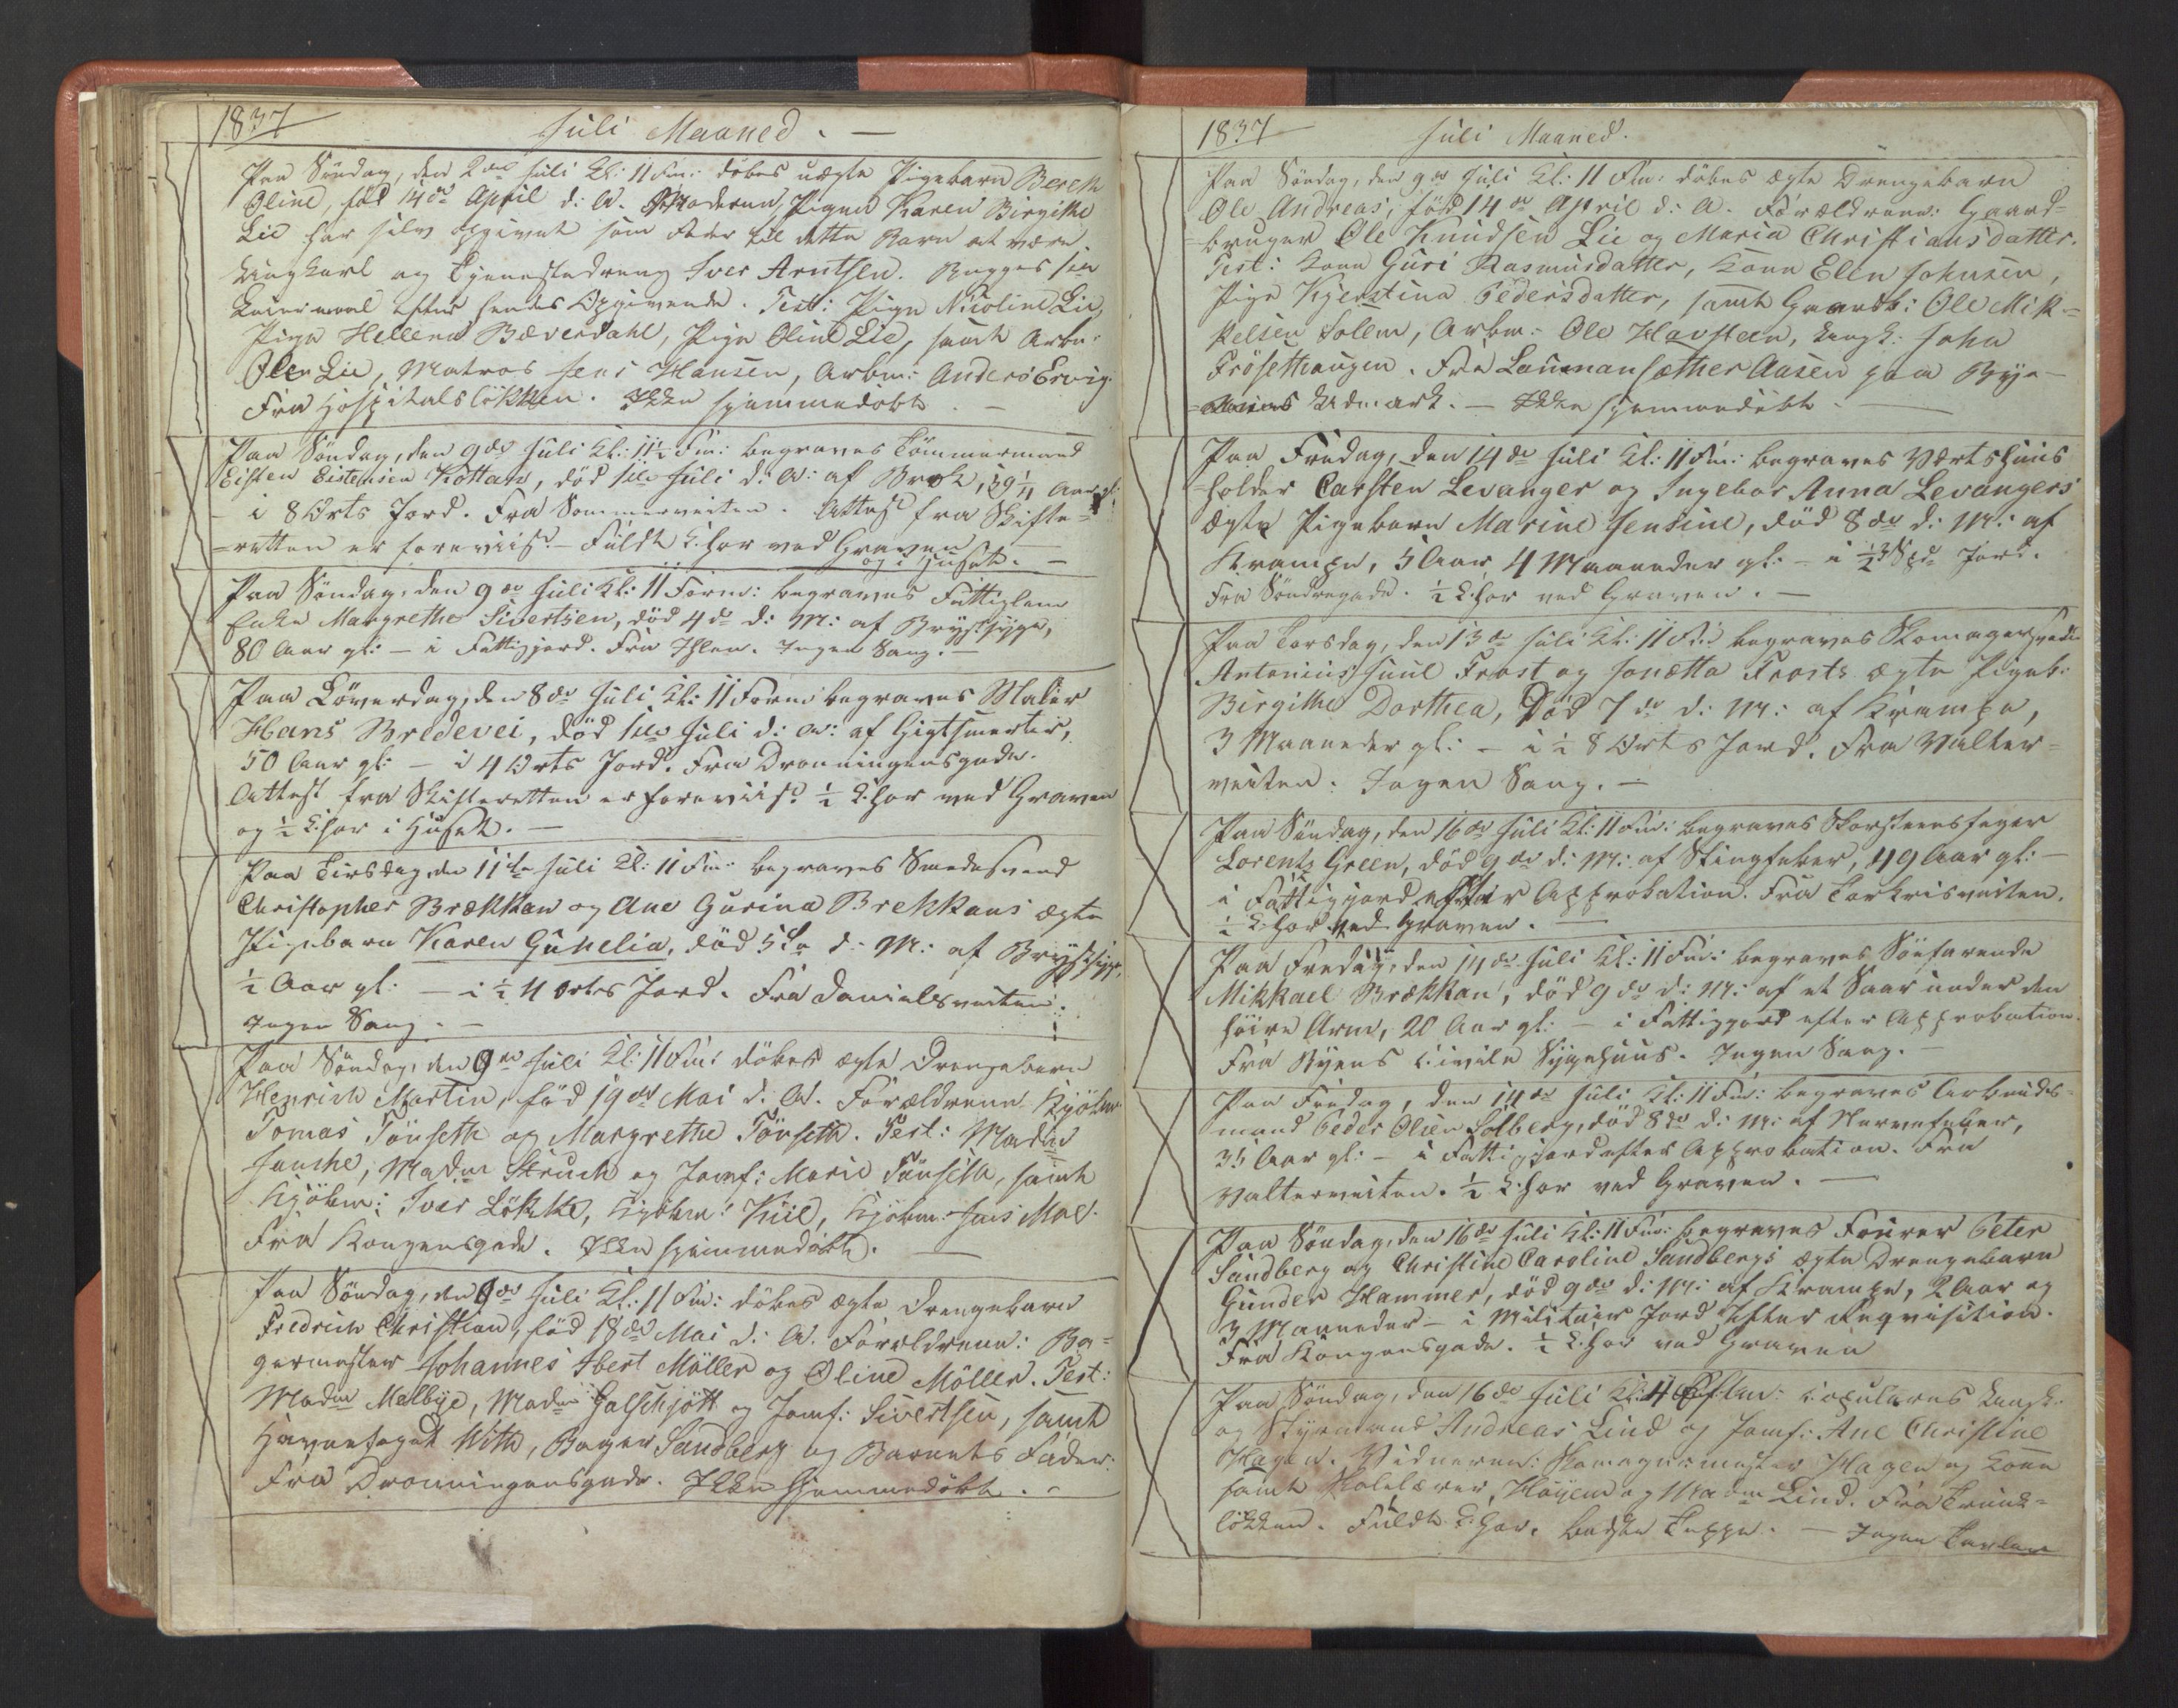 1837 Juli Maaned. —
Paa Söndag, den 2den Juli Kl: 11 Fm: döbes uægte Pigebarn Bereth
Oline, föd 14de April d: A. Moderen, Pigen Karen Birgithe
Lie har selv opgivet som Fader til dette Barn at være
Ungkarl og Tjenestedreng Iver Arntsen. Begges 1ste
Leiermaal efter hendes Opgivende. Test: Pige Nicoline Lie,
Pige Hellena Bæverdahl, Pige Oline Lie, samt Arbm:
Ole Lie, Matros Jens Hansen, Arbm: Anders Ervig.
Fra Hospitalslökken. Ikke hjemmedöbt. —
Paa Söndag, den 9de Juli Kl: 11½ Fm: begraves Tömmermand
Eisten Eistensen Kottan, död 1ste Juli d: A: af Brok, Aar gl:
— i 8 Orts Jord. Fra Sommerveiten. Attest fra Skifte-
=retten er foreviist. — Fuldt Chor ved Graven
og i Huset. —
Paa Söndag, den 9de Juli Kl: 11 Form: begraves Fattiglem
Enke Margrethe Sivertsen, död 4de d: M: af Brystsyge,
80 Aar gl: — i Fattigjord. Fra Ihlen. Ingen Sang. —
Paa Löverdag, den 8de Juli Kl: 11 Form: begraves Maler
Hans Bredevei, död 1ste Juli d: A: af Gigtsmerter,
50 Aar gl: — i 4 Orts Jord. Fra Dronningensgade.
Attest fra Skifteretten er foreviist. ½ Chor ved Graven
og ½ Chor i Huset. —
Paa Tirsdag, den 11te Juli Kl: 11 Fm: begraves Smedesvend
Christopher Brækkan og Ane Gurina Brekkans ægte
Pigebarn Karen Guhelia, död 5te d: M: af Brystsyge,
½ Aar gl: — i ½ 4 Orts Jord. Fra Danielsveiten.
Ingen Sang. —
Paa Söndag, den 9de Juli Kl: 11 Fm: döbes ægte Drengebarn
Henrich Martin, föd 19de Mai d: A. Forældrene: Kjöbm:
Tomas Tönseth og Margrethe Tönseth. Test: Madm
Jenche, Madm Struch og Jomf: Marie Tönseth, samt
Kjöbm: Iver Lökke, Kjöbm: Kiil, Kjöbm: Jens Moe.
Fra Kongensgade. Ikke hjemmedöbt. —
Paa Söndag, den 9de Juli Kl: 11 Fm: döbes ægte Drengebarn
Fredrich Christian, föd 18de Mai d: A. Forældrene: Ba-
germester Johannes Ibert Möller og Oline Möller. Test:
Madm Melbye, Madm Galschjött og Jomf: Sivertsen, samt
Havnefogat With, Bager Sandberg og Barnets Fader.
Fra Dronningensgade. Ikke hjemmedöbt. —
1837 Juli Maaned.
Paa Söndag, den 9de Juli Kl: 11 Fm: döbes ægte Drengebarn
Ole Andreas, föd 14de April d: A. Forældrene: Gaard-
=bruger Ole Knudsen Lie og Maria Christiansdatter.
Test: Kone Guri Rasmusdatter, Kone Elen Johnsen,
Pige Kjerstina Pedersdatter, samt Gaardb: Ole Mik-
kelsen Solem, Arbm: Ole Havsteen, Ungk: John
Frösethaugen. Fra Laumansætther Aasen paa Bye-
=Aasens Udmark. — Ikke hjemmedöbt —
Paa Fredag, den 14de Juli Kl: 11 Fm: begraves Vertshuus
=holder Carsten Levanger og Ingebor Anna Levangers
ægte Pigebarn Marine Jensine, död 8de d: M: af
Krampe, 5 Aar, 4 Maaneder gl: — i ½ 3 Spd. Jord.
Fra Söndregade. ½ Chor ved Graven. —
Paa Torsdag, den 13de Juli Kl: 11 Fm: begraves Skomagersvend
Antonius Juul Frost og Jonetta Frosts ægte Pigeb:
Birgithe Dorthea, död 7de d: M: af Krampe,
3 Maaneder gl: — i ½ 8 Orts Jord. Fra Valter-
veiten. Ingen Sang. —
Paa Söndag, den 16de Juli Kl: 11 Fm: begraves Skorsteensfeger
Lorentz Green, död 9de d: M: af Stingfeber, 49 Aar gl: —
i Fattigjord efter Approbation. Fra Torkrisveiten.
½ Chor ved Graven. —
Paa Fredag, den 14de Juli Kl: 11 Fm: begraves Söefarende
Mikkael Brækkan, död 9de d: M: af et Saar under den
höire Arm, 20 Aar gl: — i Fattigjord efter Approbation.
Fra Byens Civile Sygehuus. Ingen Sang. —
Paa Fredag, den 14de Juli Kl: 11 Fm: begraves Arbeids-
mand Peder Olsen Solberg, död 8de d: M: af Nervefeber,
35 Aar gl: — i Fattigjord efter Approbation. Fra
Valterveiten. ½ Chor ved Graven. —
Paa Söndag, den 16de Juli Kl: 11 Fm: begraves Fourer Peter
Sandberg og Christine Caroline Sandbergs ægte Drengebarn
Gunder Hammer, död 9de d: M: af Krampe, 2 Aar og
3 Maaneder — i Militair Jord efter Reqvisition.
Fra Kongensgade. ½ Chor ved Graven
Paa Söndag, den 16de Juli Kl: 4 Eftm: copuleres Ungk.
og Styrmand Andreas Lind og Jomf: Ane Christine
Hagen. Vidnerne: Skomagermester Hagen og Kone
samt Skolelærer Höyem og Madm Lind. Fra Trunk-
lökken. Fuldt Chor. Bedste Teppe. — Ingen Tavler